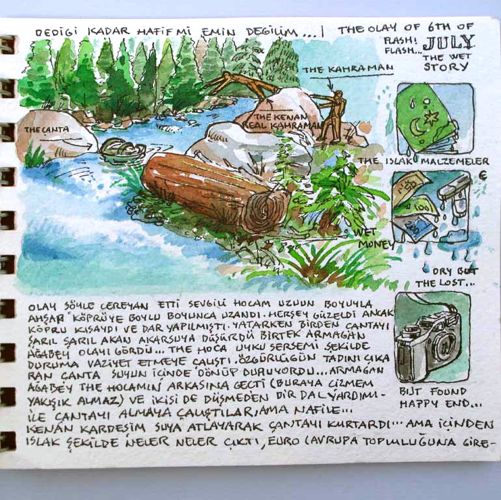 DEDİĞİ KADAR HAFİF Mİ EMİN DEĞİLİM...
THE OLAY OF 6TH OF
JULY
FLASH!
FLASH...
THE WET
STORY
THE KAHRAMAN
THE KENAN
REAL KAHRAMAN
THE CANTA
THE ISLAK MALZEMELER
WET
MONEY
DRY BUT
THE LOST...
BUT FOUND
HAPPY END...
OLAY ŞÖYLE CEREYAN ETTİ SEVGİLİ HOCAM UZUUN BOYUYLA
AHŞAP KÖPRÜYE BOYLU BOYUNCA UZANDI. HERŞEY GÜZELDİ ANCAK
KÖPRÜ KISAYDI VE DAR YAPILMIŞTI. YATARKEN BİRDEN ÇANTAYI
ŞARIL ŞARIL AKAN AKARSUYA DÜŞÜRDÜ BİRTEK ARMAĞAN
AĞABEY OLAYI GÖRDÜ... THE HOCA UYKU SERSEMİ ŞEKİLDE
DURUMA VAZİYET ETMEYE ÇALIŞTI. ÖZGÜRLÜĞÜN TADINI ÇIKA
RAN ÇANTA SUYUN İÇİNDE DÖNÜP DURUYORDU... ARMAĞAN
AĞABEY THE HOCAMIN ARKASINA GEÇTİ (BURAYA ÇİZMEM
YAKIŞIK ALMAZ) VE İKİSİ DE DÜŞMEDEN BİR DAL YARDIMI-
İLE ÇANTAYI ALMAYA ÇALIŞTILAR, AMA NAFİLE...
KENAN KARDEŞİM SUYA ATLAYARAK ÇANTAYI KURTARDI... AMA İÇİNDEN
ISLAK ŞEKİLDE NELER NELER ÇIKTI, EURO (AVRUPA TOPLULUĞUNA GİRE-